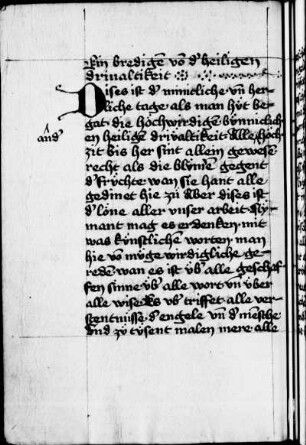 Ein bredigē vō d' heiligen
drivaltikeit
Dises ist d' miñcliche vñ her-
liche tage als man hṽt be-
gat die hochwirdigen wunniclich-
en heiligen drivaltikeit Alle hoch
and'
zit bis her sint allein gewesē
recht als die blůmē gegent
d' frṽchte wan sie hant alle
gedinet hie zů Aber dises ist
d' lone aller vnser arbeit
mant mag es erdenken mit
was kṽnstlichē worten man
hie vō mṽge wirdigliche ge-
reden wan es ist vb' alle geschaf-
fen sinne vb' alle wort vñ vber
alle wise es vb' triffet alle ver-
stentnisse d' engele vñ d' mēsche
vnd zů tusent malen mere alle